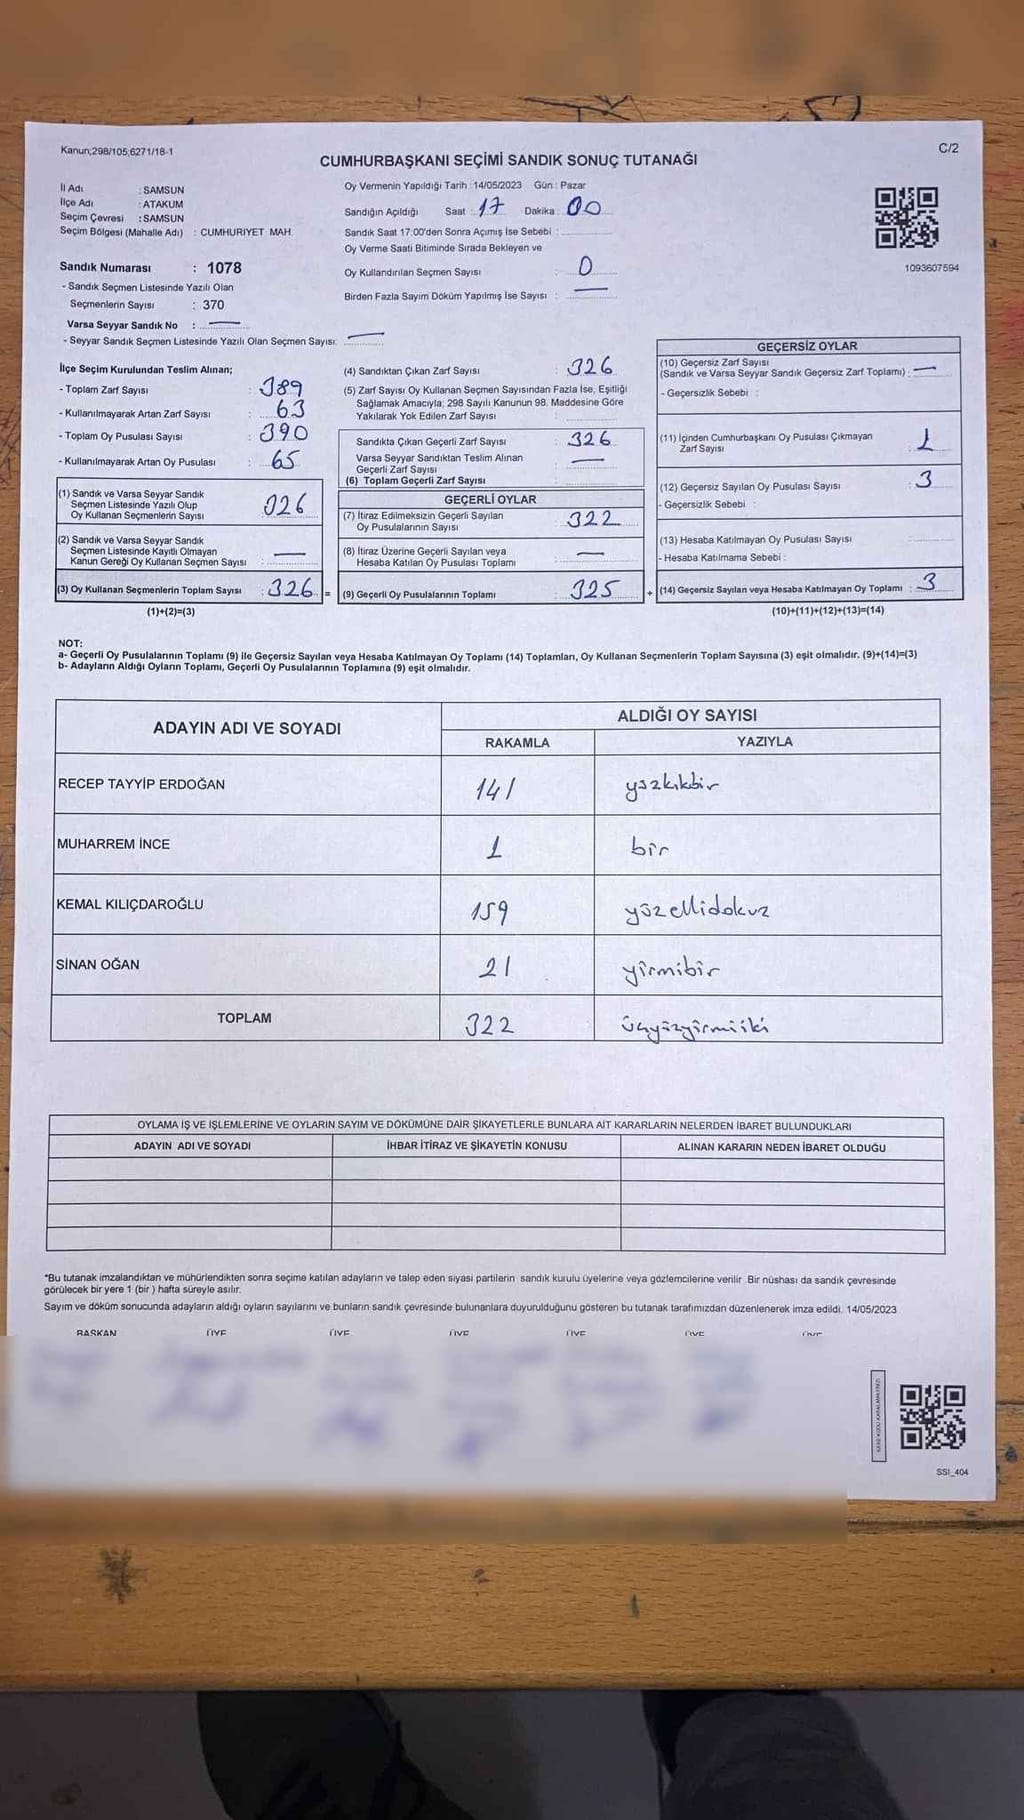 Kanun;298/105;6271/18-1
C/2
CUMHURBAŞKANI SEÇİMİ SANDIK SONUÇ TUTANAĞI
İl Adı : SAMSUN
İlçe Adı : ATAKUM
Seçim Çevresi : SAMSUN
Seçim Bölgesi (Mahalle Adı) : CUMHURİYET MAH.
Oy Vermenin Yapıldığı Tarih : 14/05/2023 Gün : Pazar
Sandığın Açıldığı Saat : 17 Dakika : 00
Sandık Saat 17:00'den Sonra Açımış İse Sebebi :
Oy Verme Saati Bitiminde Sırada Bekleyen ve
Oy Kullandırılan Seçmen Sayısı : 0
Birden Fazla Sayım Döküm Yapılmış İse Sayısı : —
1093607594
Sandık Numarası : 1078
- Sandık Seçmen Listesinde Yazılı Olan
Seçmenlerin Sayısı : 370
Varsa Seyyar Sandık No : —
- Seyyar Sandık Seçmen Listesinde Yazılı Olan Seçmen Sayısı: —
İlçe Seçim Kurulundan Teslim Alınan;
- Toplam Zarf Sayısı : 389
- Kullanılmayarak Artan Zarf Sayısı : 63
- Toplam Oy Pusulası Sayısı : 390
- Kullanılmayarak Artan Oy Pusulası : 65
(1) Sandık ve Varsa Seyyar Sandık
Seçmen Listesinde Yazılı Olup
Oy Kullanan Seçmenlerin Sayısı 326
(2) Sandık ve Varsa Seyyar Sandık
Seçmen Listesinde Kayıtlı Olmayan
Kanun Gereği Oy Kullanan Seçmen Sayısı : —
(3) Oy Kullanan Seçmenlerin Toplam Sayısı : 326 =
(1)+(2)=(3)
(4) Sandıktan Çıkan Zarf Sayısı : 326
(5) Zarf Sayısı Oy Kullanan Seçmen Sayısından Fazla İse, Eşitliği
Sağlamak Amacıyla; 298 Sayılı Kanunun 98. Maddesine Göre
Yakılarak Yok Edilen Zarf Sayısı :
Sandıkta Çıkan Geçerli Zarf Sayısı : 326
Varsa Seyyar Sandıktan Teslim Alınan
Geçerli Zarf Sayısı : —
(6) Toplam Geçerli Zarf Sayısı :
GEÇERLİ OYLAR
(7) İtiraz Edilmeksizin Geçerli Sayılan
Oy Pusulalarının Sayısı : 322
(8) İtiraz Üzerine Geçerli Sayılan veya
Hesaba Katılan Oy Pusulası Toplamı : —
(9) Geçerli Oy Pusulalarının Toplamı : 325 +
GEÇERSİZ OYLAR
(10) Geçersiz Zarf Sayısı
(Sandık ve Varsa Seyyar Sandık Geçersiz Zarf Toplamı) : —
- Geçersizlik Sebebi :
(11) İçinden Cumhurbaşkanı Oy Pusulası Çıkmayan
Zarf Sayısı : 1
(12) Geçersiz Sayılan Oy Pusulası Sayısı : 3
- Geçersizlik Sebebi :
(13) Hesaba Katılmayan Oy Pusulası Sayısı :
- Hesaba Katılmama Sebebi :
(14) Geçersiz Sayılan veya Hesaba Katılmayan Oy Toplamı : 3
(10)+(11)+(12)+(13)=(14)
NOT:
a- Geçerli Oy Pusulalarının Toplamı (9) ile Geçersiz Sayılan veya Hesaba Katılmayan Oy Toplamı (14) Toplamları, Oy Kullanan Seçmenlerin Toplam Sayısına (3) eşit olmalıdır. (9)+(14)=(3)
b- Adayların Aldığı Oyların Toplamı, Geçerli Oy Pusulalarının Toplamına (9) eşit olmalıdır.
ADAYIN ADI VE SOYADI ALDIĞI OY SAYISI
RAKAMLA YAZIYLA
RECEP TAYYİP ERDOĞAN 141 yüzkıkbir
MUHARREM İNCE 1 bir
KEMAL KILIÇDAROĞLU 159 yüzellidokuz
SİNAN OĞAN 21 yirmibir
TOPLAM 322 üçyüzyirmiiki
OYLAMA İŞ VE İŞLEMLERİNE VE OYLARIN SAYIM VE DÖKÜMÜNE DAİR ŞİKAYETLERLE BUNLARA AİT KARARLARIN NELERDEN İBARET BULUNDUKLARI
ADAYIN ADI VE SOYADI İHBAR İTİRAZ VE ŞİKAYETİN KONUSU ALINAN KARARIN NEDEN İBARET OLDUĞU
*Bu tutanak imzalandıktan ve mühürlendikten sonra seçime katılan adayların ve talep eden siyasi partilerin sandık kurulu üyelerine veya gözlemcilerine verilir. Bir nüshası da sandık çevresinde
görülecek bir yere 1 (bir) hafta süreyle asılır.
Sayım ve döküm sonucunda adayların aldığı oyların sayılarını ve bunların sandık çevresinde bulunanlara duyurulduğunu gösteren bu tutanak tarafımızdan düzenlenerek imza edildi. 14/05/2023
BAŞKAN ÜYE ÜYE ÜYE ÜYE ÜYE ÜYE
SSI_404